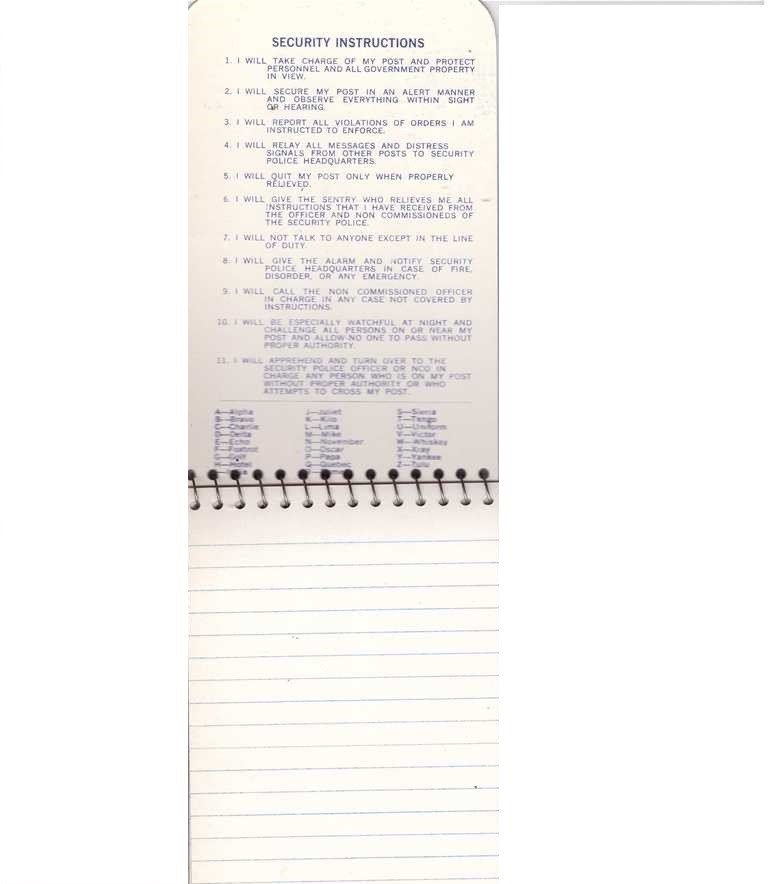 SECURITY INSTRUCTIONS
1. I WILL TAKE CHARGE OF MY POST AND PROTECT
PERSONNEL AND ALL GOVERNMENT PROPERTY
IN VIEW.
2. I WILL SECURE MY POST IN AN ALERT MANNER
AND OBSERVE EVERYTHING WITHIN SIGHT
OR HEARING.
3. I WILL REPORT ALL VIOLATIONS OF ORDERS I AM
INSTRUCTED TO ENFORCE.
4. I WILL RELAY ALL MESSAGES AND DISTRESS
SIGNALS FROM OTHER POSTS TO SECURITY
POLICE HEADQUARTERS.
5. I WILL QUIT MY POST ONLY WHEN PROPERLY
RELIEVED.
6. I WILL GIVE THE SENTRY WHO RELIEVES ME ALL
INSTRUCTIONS THAT I HAVE RECEIVED FROM
THE OFFICER AND NON COMMISSIONEDS OF
THE SECURITY POLICE.
7. I WILL NOT TALK TO ANYONE EXCEPT IN THE LINE
OF DUTY.
8. I WILL GIVE THE ALARM AND NOTIFY SECURITY
POLICE HEADQUARTERS IN CASE OF FIRE,
DISORDER, OR ANY EMERGENCY.
9. I WILL CALL THE NON COMMISSIONED OFFICER
IN CHARGE IN ANY CASE NOT COVERED BY
INSTRUCTIONS.
10. I WILL BE ESPECIALLY WATCHFUL AT NIGHT AND
CHALLENGE ALL PERSONS ON OR NEAR MY
POST AND ALLOW NO ONE TO PASS WITHOUT
PROPER AUTHORITY.
11. I WILL APPREHEND AND TURN OVER TO THE
SECURITY POLICE OFFICER OR NCO IN
CHARGE ANY PERSON WHO IS ON MY POST
WITHOUT PROPER AUTHORITY OR WHO
ATTEMPTS TO CROSS MY POST.
A—Alpha
B—Bravo
C—Charlie
D—Delta
E—Echo
F—Foxtrot
G—Golf
H—Hotel
J—Juliet
K—Kilo
L—Lima
M—Mike
N—November
O—Oscar
P—Papa
Q—Quebec
S—Sierra
T—Tango
U—Uniform
V—Victor
W—Whiskey
X—Xray
Y—Yankee
Z—Zulu